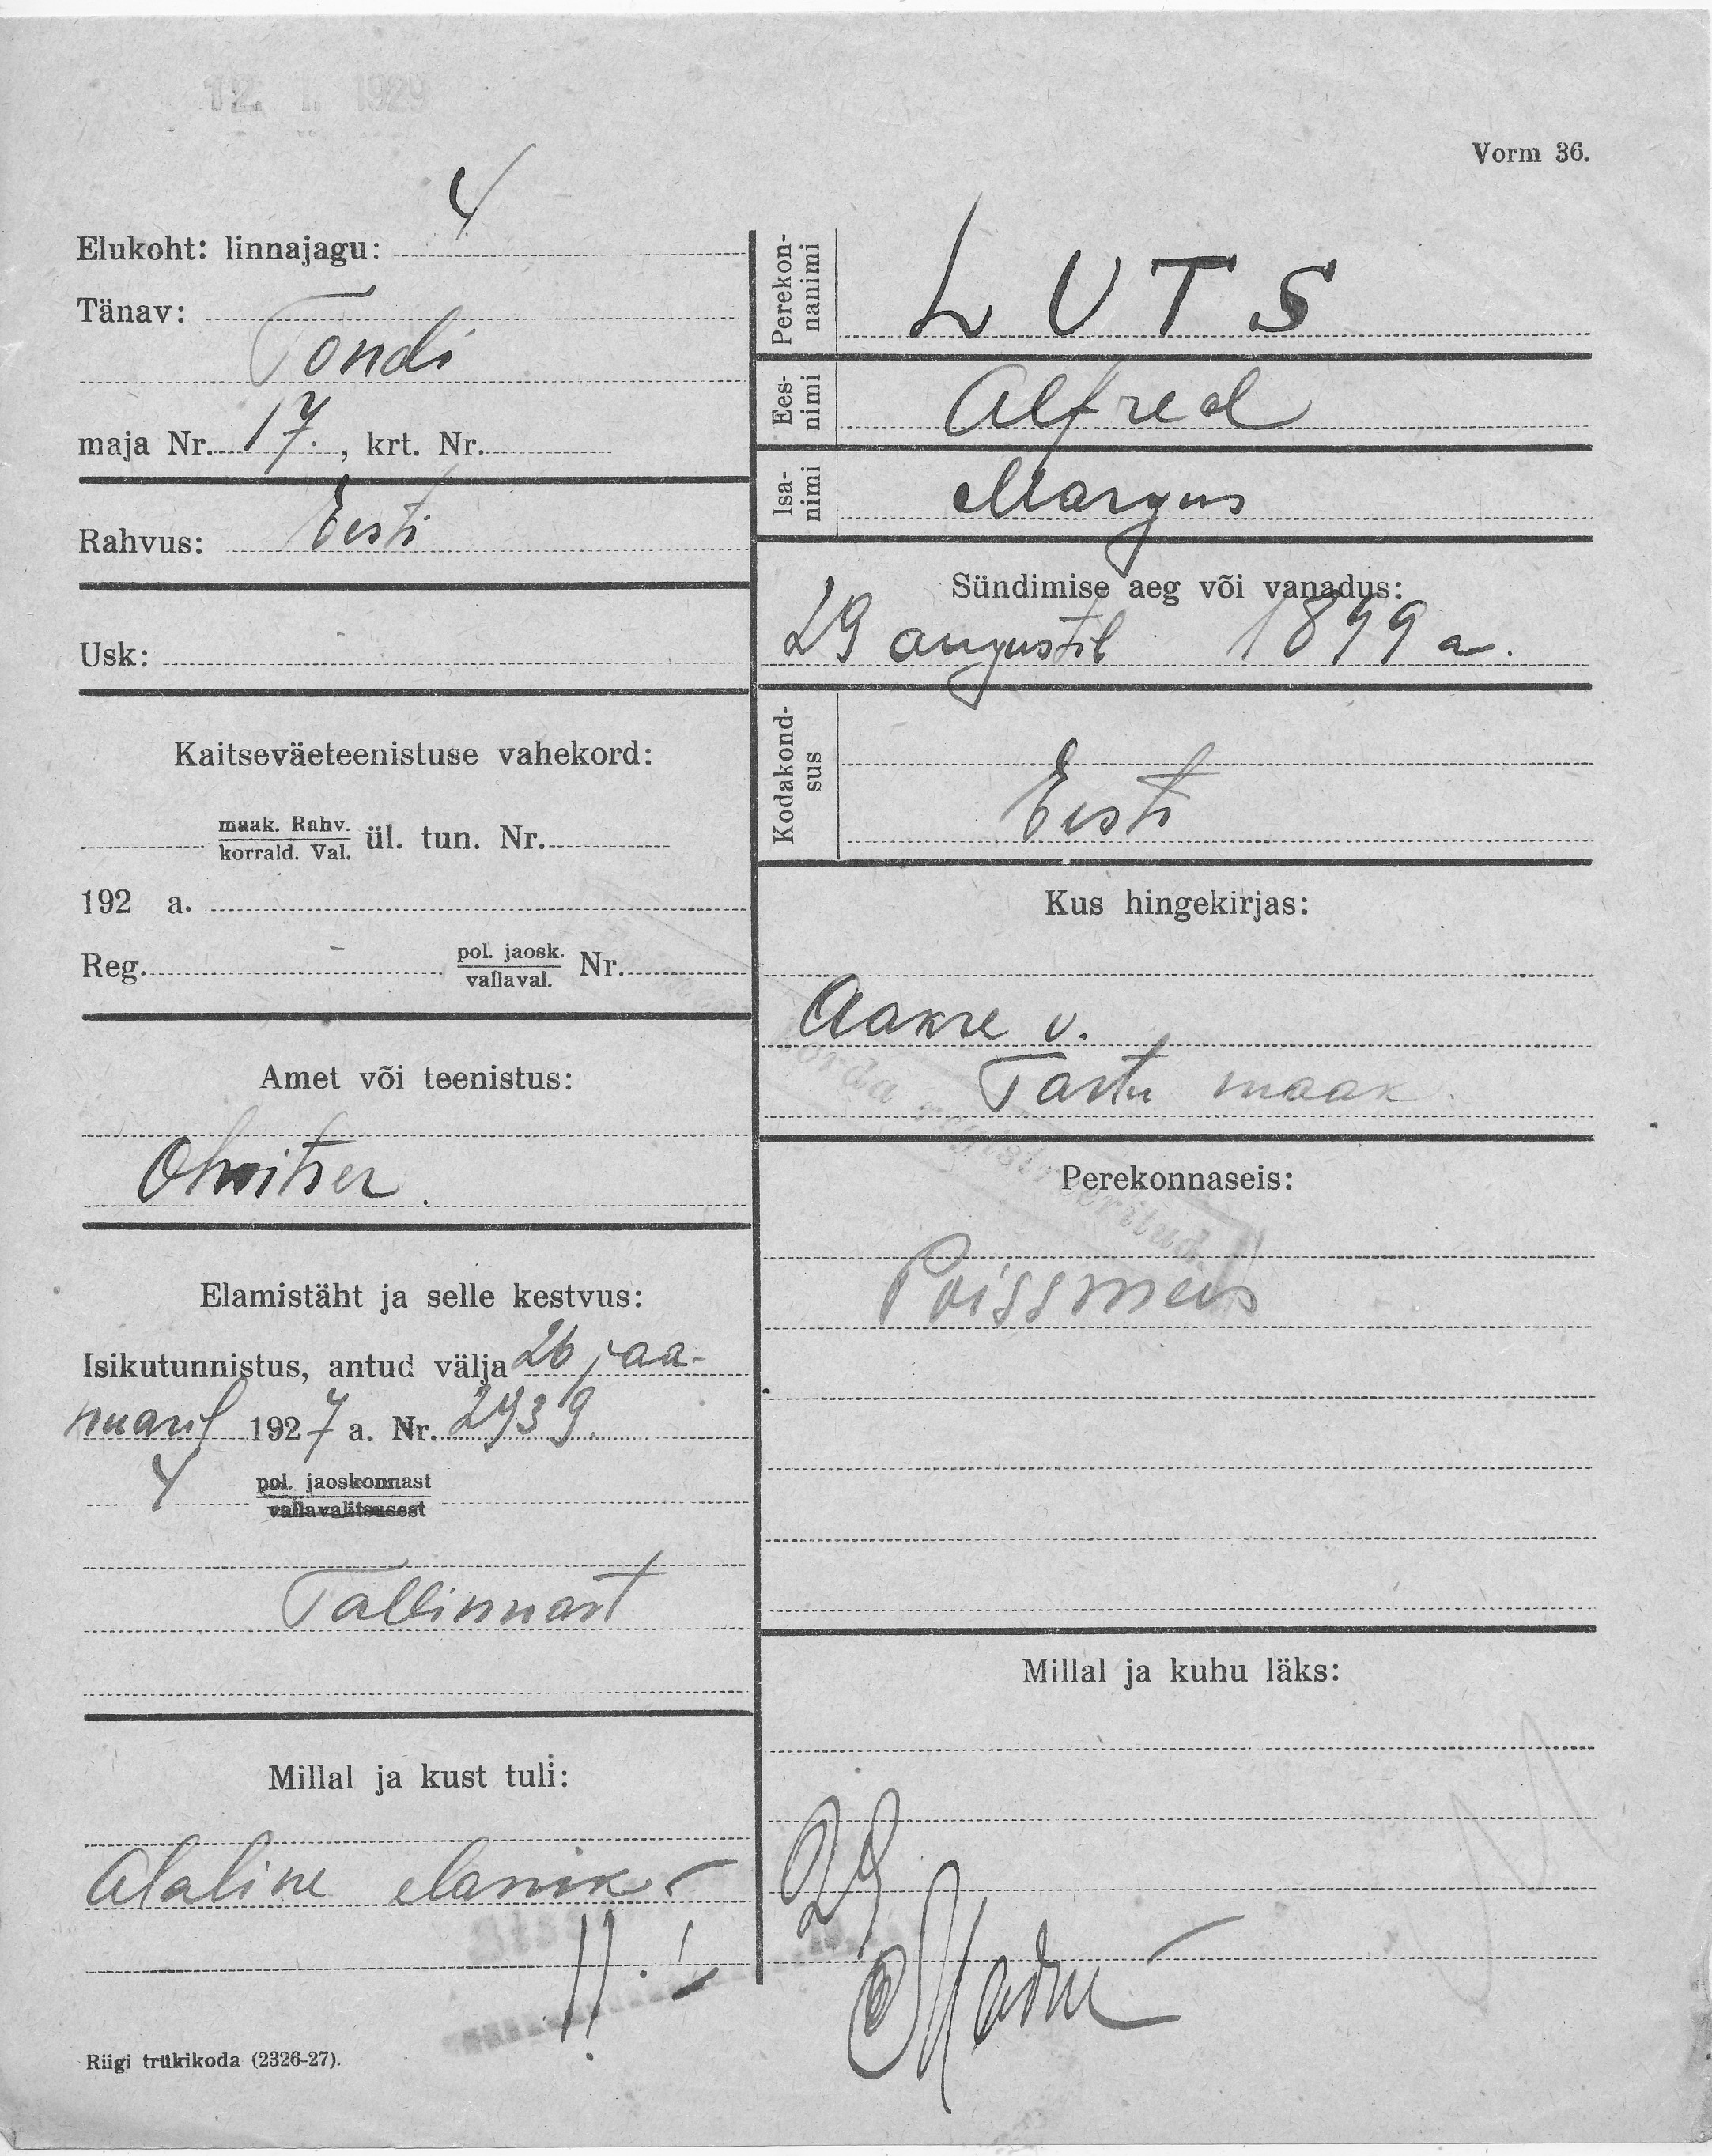 12. I. 1929
Vorm 36.
Elukoht: linnajagu: 4
Tänav:
Tondi
maja Nr. 17., krt. Nr.
Rahvus: Eesti
Usk:
Kaitseväeteenistuse vahekord:
maak. Rahv.
korrald. Val. ül. tun. Nr.
192 a.
Reg. pol. jaosk.
vallaval. Nr.
Amet või teenistus:
Ohvitser.
Elamistäht ja selle kestvus:
Isikutunnistus, antud välja 26 jaa-
nuaril 1927 a. Nr. 2939.
4 pol. jaoskonnast
vallavalitsusest
Tallinnast
Millal ja kust tuli:
Alaline elanik
Riigi trükikoda (2326-27).
Perekon-
nanimi LUTS
Ees-
nimi Alfred
Isa-
nimi Margus
Sündimise aeg või vanadus:
29 augustil 1899 a.
Kodakond-
sus Eesti
Kus hingekirjas:
Aakre v.
Tartu maak.
korda registreeritud.
Perekonnaseis:
Poissmees
Millal ja kuhu läks:
29